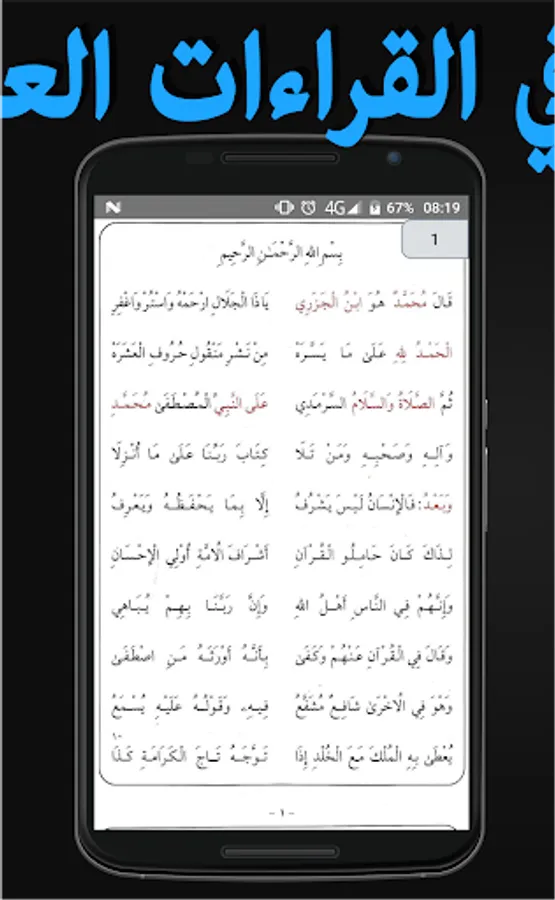 في القراءات الع
4G 67% 08:19
1
بِسْمِ اللهِ الرَّحْمَـٰنِ الرَّحِيمِ
قَالَ مُحَمَّدٌ هُوَ ابْنُ الْجَزَرِي يَاذَا الْجَلَالِ ارْحَمْهُ وَاسْتُرْ وَاغْفِرِ
الْحَمْدُ لِلهِ عَلَىٰ مَا يَسَّرَهْ مِنْ نَشْرِ مَنْقُولِ حُرُوفِ الْعَشَرَهْ
ثُمَّ الصَّلَاةُ وَالسَّلَامُ السَّرْمَدِي عَلَى النَّبِيِّ الْمُصْطَفَىٰ مُحَمَّدِ
وَآلِهِ وَصَحْبِهِ وَمَنْ تَلَا كِتَابَ رَبِّنَا عَلَىٰ مَا أُنْزِلَا
وَبَعْدُ: فَالْإِنْسَانُ لَيْسَ يَشْرُفُ إِلَّا بِمَا يَحْفَظُهُ وَيَعْرِفُ
لِذَاكَ كَانَ حَامِلُو الْقُرْآنِ أَشْرَافَ الْأُمَّةِ أُولِي الْإِحْسَانِ
وَإِنَّهُمْ فِي النَّاسِ أَهْلُ اللهِ وَإِنَّ رَبَّنَا بِهِمْ يُبَاهِي
وَقَالَ فِي الْقُرْآنِ عَنْهُمْ وَكَفَىٰ بِأَنَّهُ أَوْرَثَهُ مَنِ اصْطَفَىٰ
وَهْوَ فِي الْاخْرَىٰ شَافِعٌ مُشَفَّعُ فِيهِ، وَقَوْلُهُ عَلَيْهِ يُسْمَعُ
يُعْطَىٰ بِهِ الْمُلْكَ مَعَ الْخُلْدِ إِذَا تَوَّجَهُ تَاجَ الْكَرَامَةِ كَذَا
- ١ -